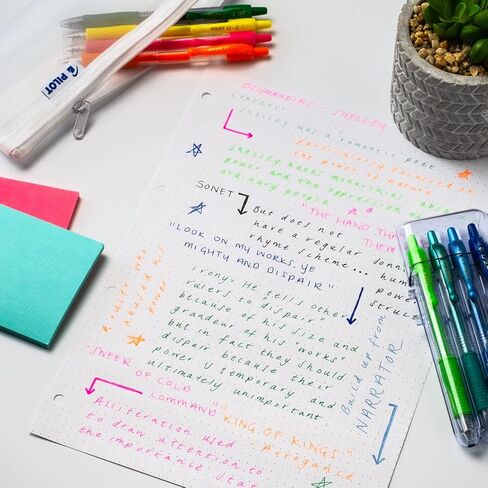 PILOT
OZYMANDIAS - SHELLEY
Context:
Shelley was a romantic poet
particularly interested in
the power of nature
Shelley hated monarchies
power and the oppression of
ordinary people
"THE HAND THA
THEM
SONNET
But does not
have a regular sonn
rhyme scheme...
hum
power
struct
"LOOK ON MY WORKS, YE
MIGHTY AND DESPAIR"
Irony: He tells other
rulers to "despair"
because of his size and
grandeur of his "works"
but in fact they should
despair because their
power is temporary and
ultimately unimportant.
A ruler who
abused his
power
Build up from
NARRATOR
"SNEER
OF COLD
COMMAND"
"KING OF KINGS"
- Arrogance
Alliteration used
to draw attention to
the importance